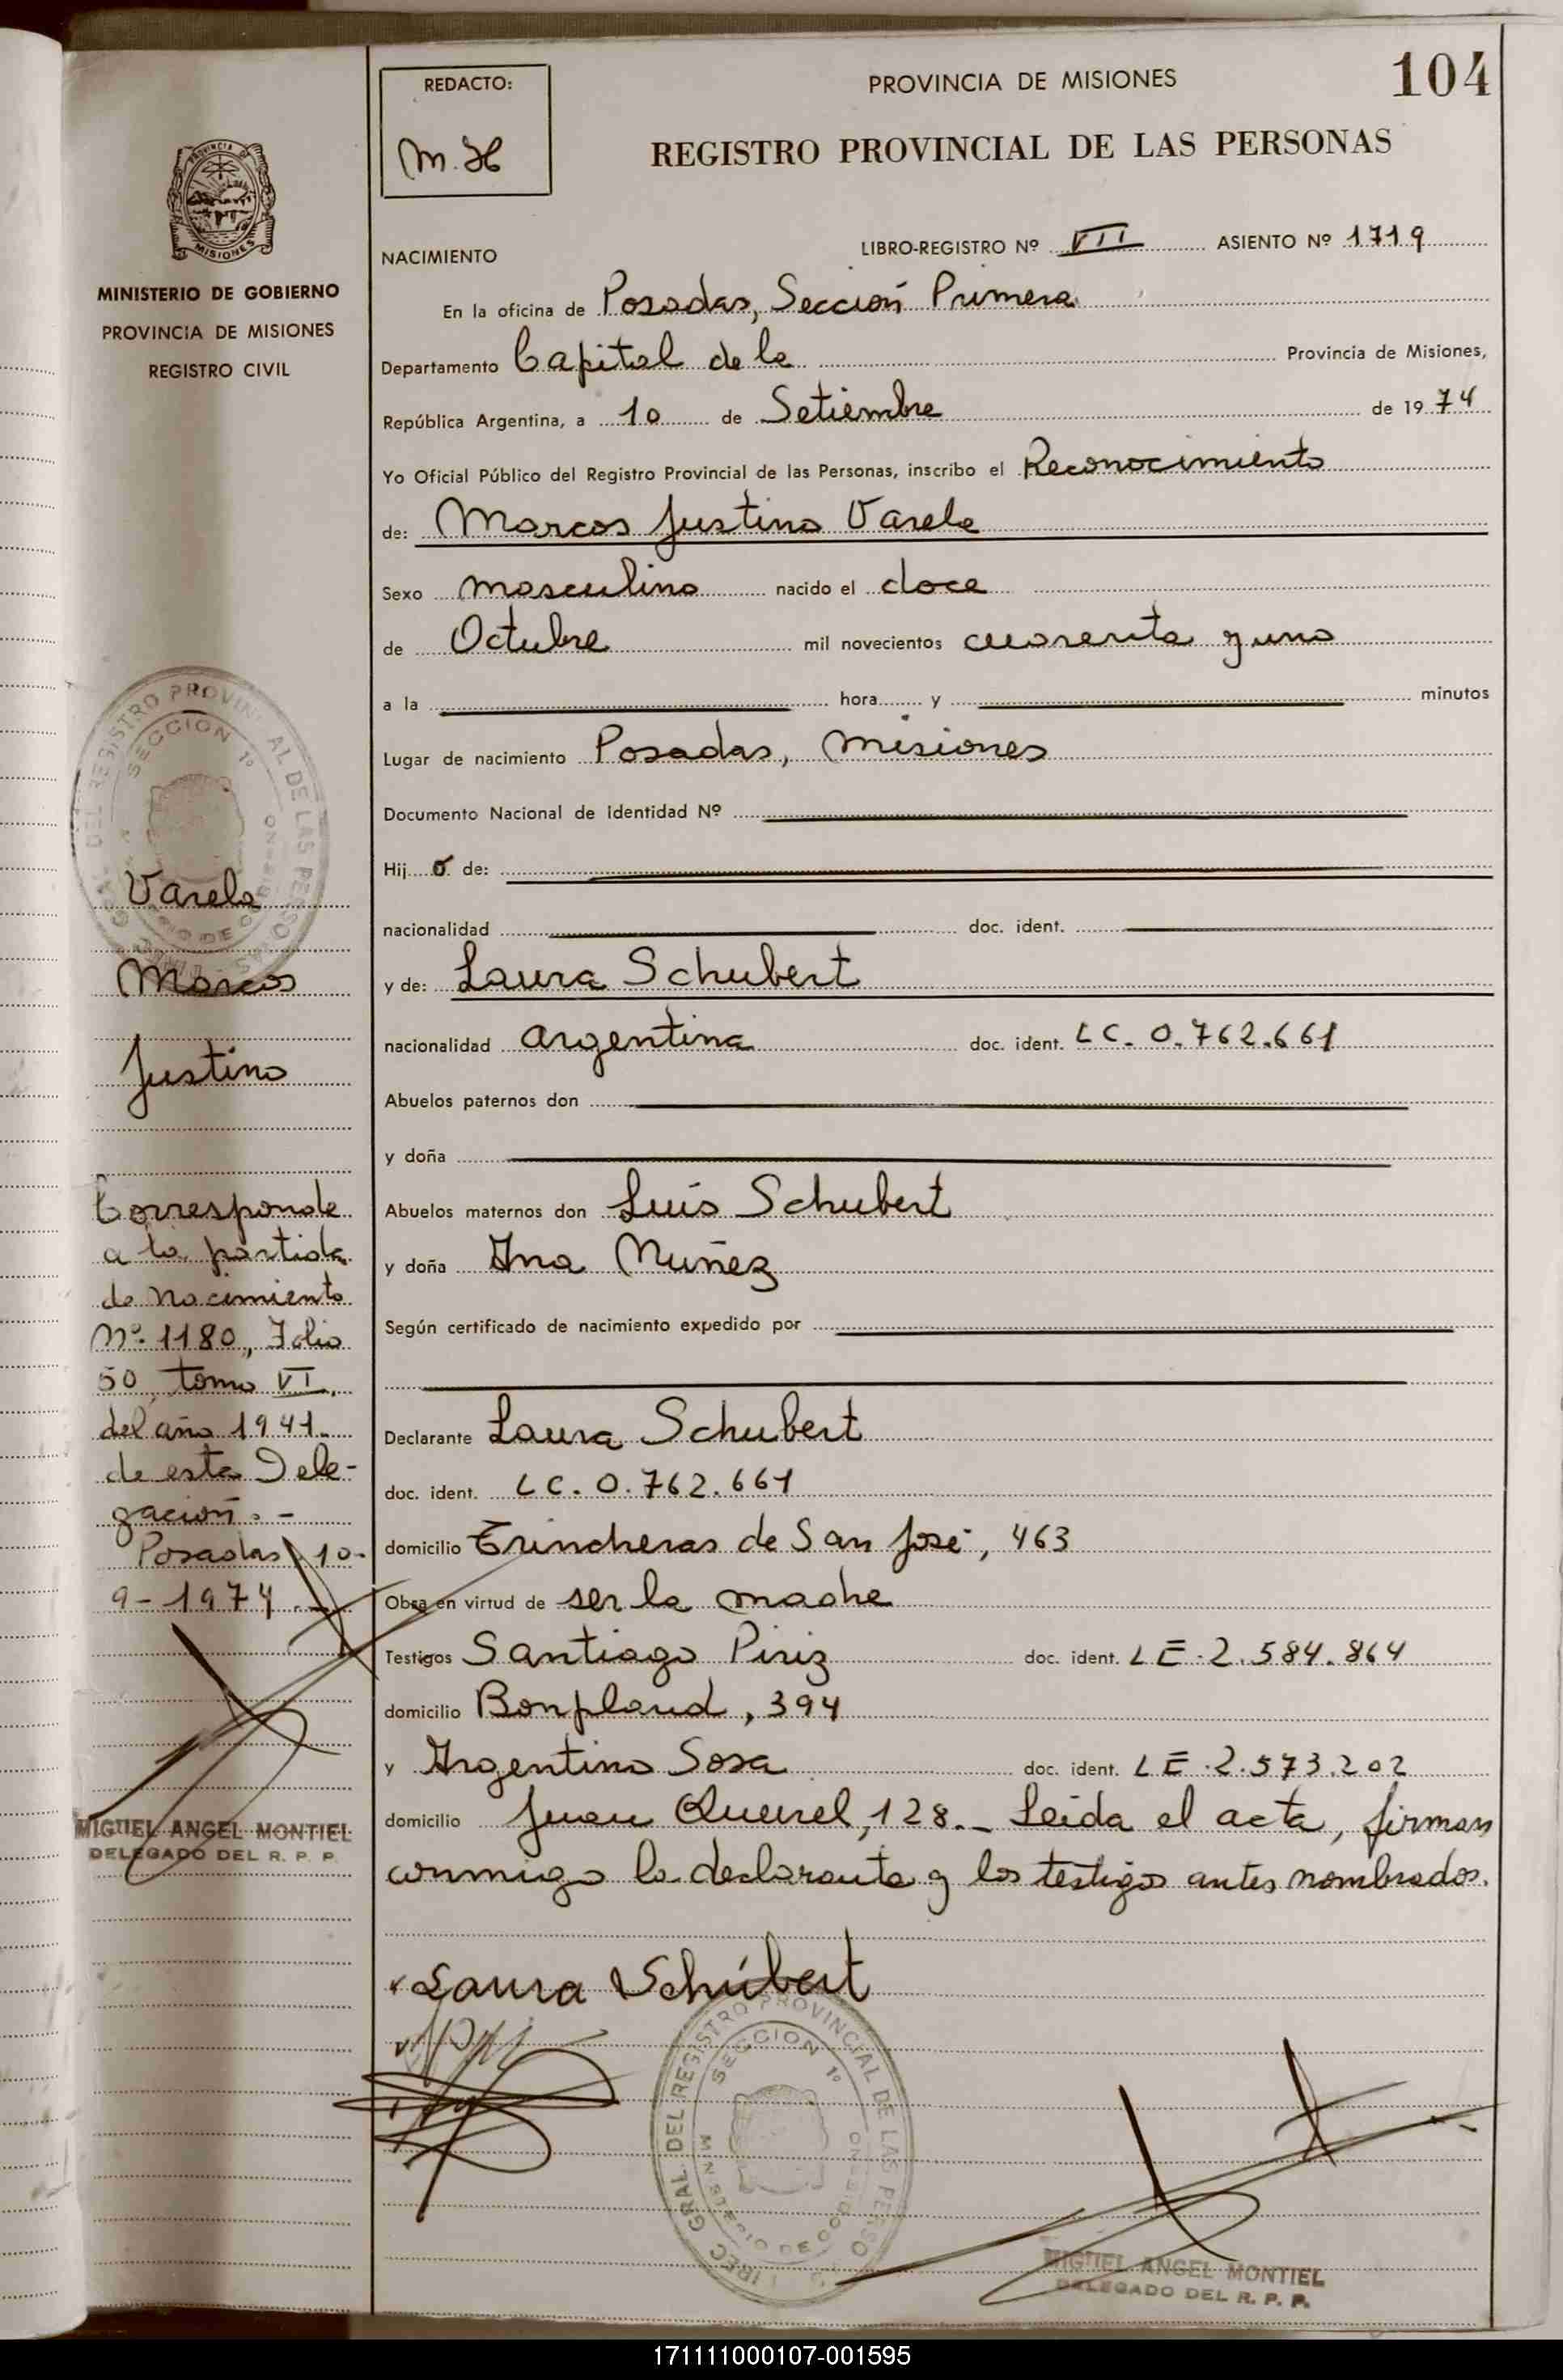 REDACTO:
M.H
PROVINCIA DE MISIONES
104
REGISTRO PROVINCIAL DE LAS PERSONAS
PROVINCIA DE MISIONES
MINISTERIO DE GOBIERNO
PROVINCIA DE MISIONES
REGISTRO CIVIL
NACIMIENTO
LIBRO-REGISTRO Nº VII ASIENTO Nº 1719
En la oficina de Posadas, Sección Primera
Departamento Capital de la Provincia de Misiones,
República Argentina, a 10 de Setiembre de 1974
Yo Oficial Público del Registro Provincial de las Personas, inscribo el Reconocimiento
de: Marcos Justino Varela
Sexo masculino nacido el doce
de Octubre mil novecientos cuarenta y uno
a la hora y minutos
Lugar de nacimiento Posadas, Misiones
Documento Nacional de Identidad Nº
Hij o de:
nacionalidad doc. ident.
y de: Laura Schubert
nacionalidad argentina doc. ident. LC. 0.762.661
Abuelos paternos don
y doña
Abuelos maternos don Luis Schubert
y doña Ana Nuñez
Según certificado de nacimiento expedido por
Declarante Laura Schubert
doc. ident. LC. 0.762.661
domicilio Trincheras de San José, 463
Obra en virtud de ser la madre
Testigos Santiago Piriz doc. ident. LE.2.584.864
domicilio Bonpland, 394
y Argentino Sosa doc. ident. LE.2.573.202
domicilio Juan Quenel, 128.- Leída el acta, firman
conmigo la declarante y los testigos antes nombrados.
Laura Schúbert
SECCION 1º
MIGUEL ANGEL MONTIEL
DELEGADO DEL R. P. P.
SECCION 1º
Varela
Marcos
Justino
Corresponde
a la partida
de nacimiento
Nº 1180, Folio
50, tomo VI,
del año 1941.
de esta Dele-
gación.-
Posadas, 10-
9-1974.-
MIGUEL ANGEL MONTIEL
DELEGADO DEL R. P. P.
171111000107-001595